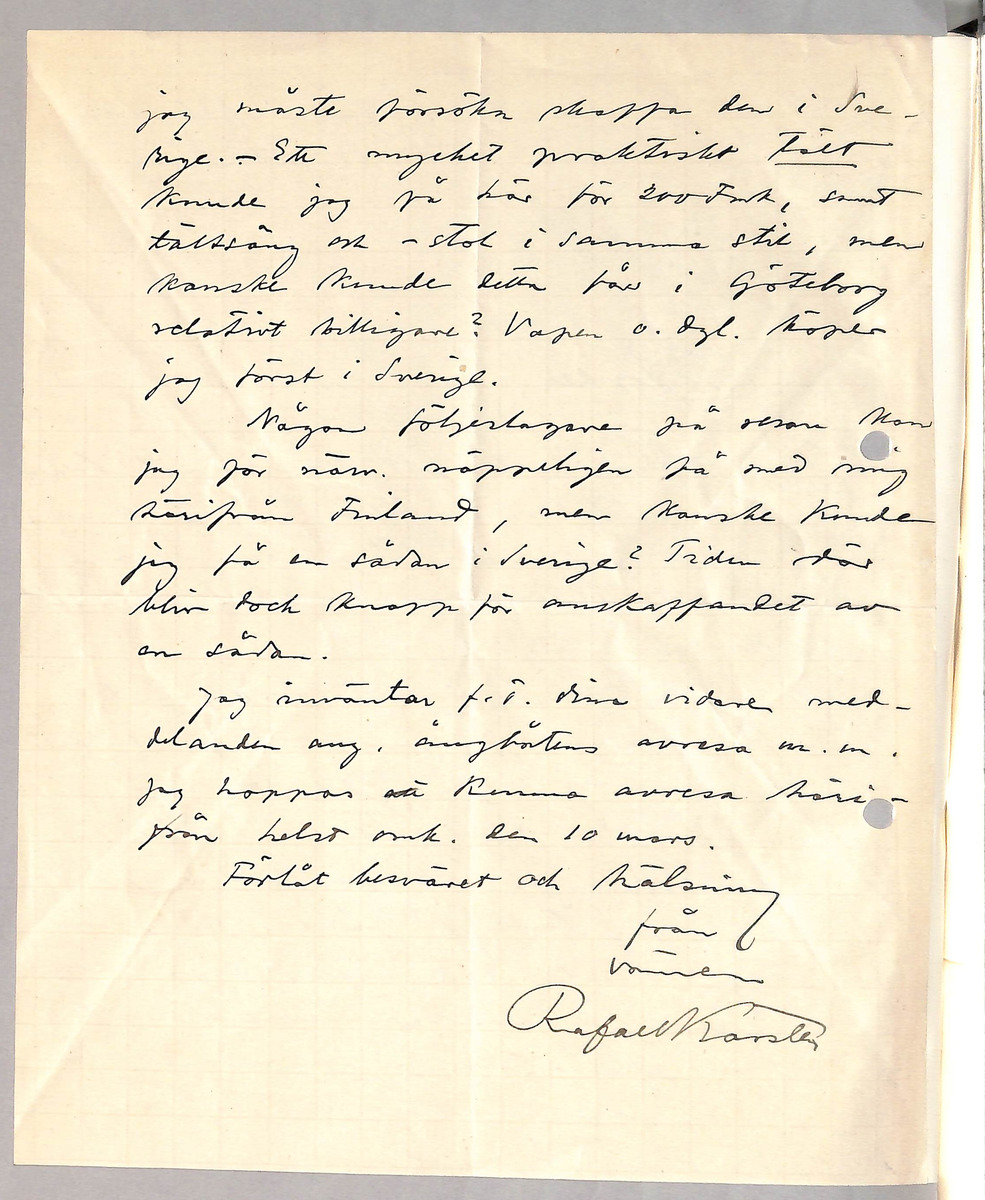 jag måste försöka skaffa den i Sve-
rige. - Ett mycket praktiskt tält
kunde jag få här för 200 Fmk, samt
tältsäng och -stol i samma stil, men
kanske kunde detta fås i Göteborg
relativt billigare? Vapen o. dyl. köper
jag först i Sverige.
Någon följeslagare på resan kan
jag för närv. näppeligen få med mig
härifrån Finland, men kanske kunde
jag få en sådan i Sverige? Tiden där
blir doch knapp för anskaffandet av
en sådan.
Jag inväntar f. ö. dina vidare med-
delanden ang. ångbåtens avresa m. m.
Jag hoppas att kunna avresa häri-
från helst omk. den 10 mars.
Förlåt besväret och hälsning
från
vännen
Rafael Karsten